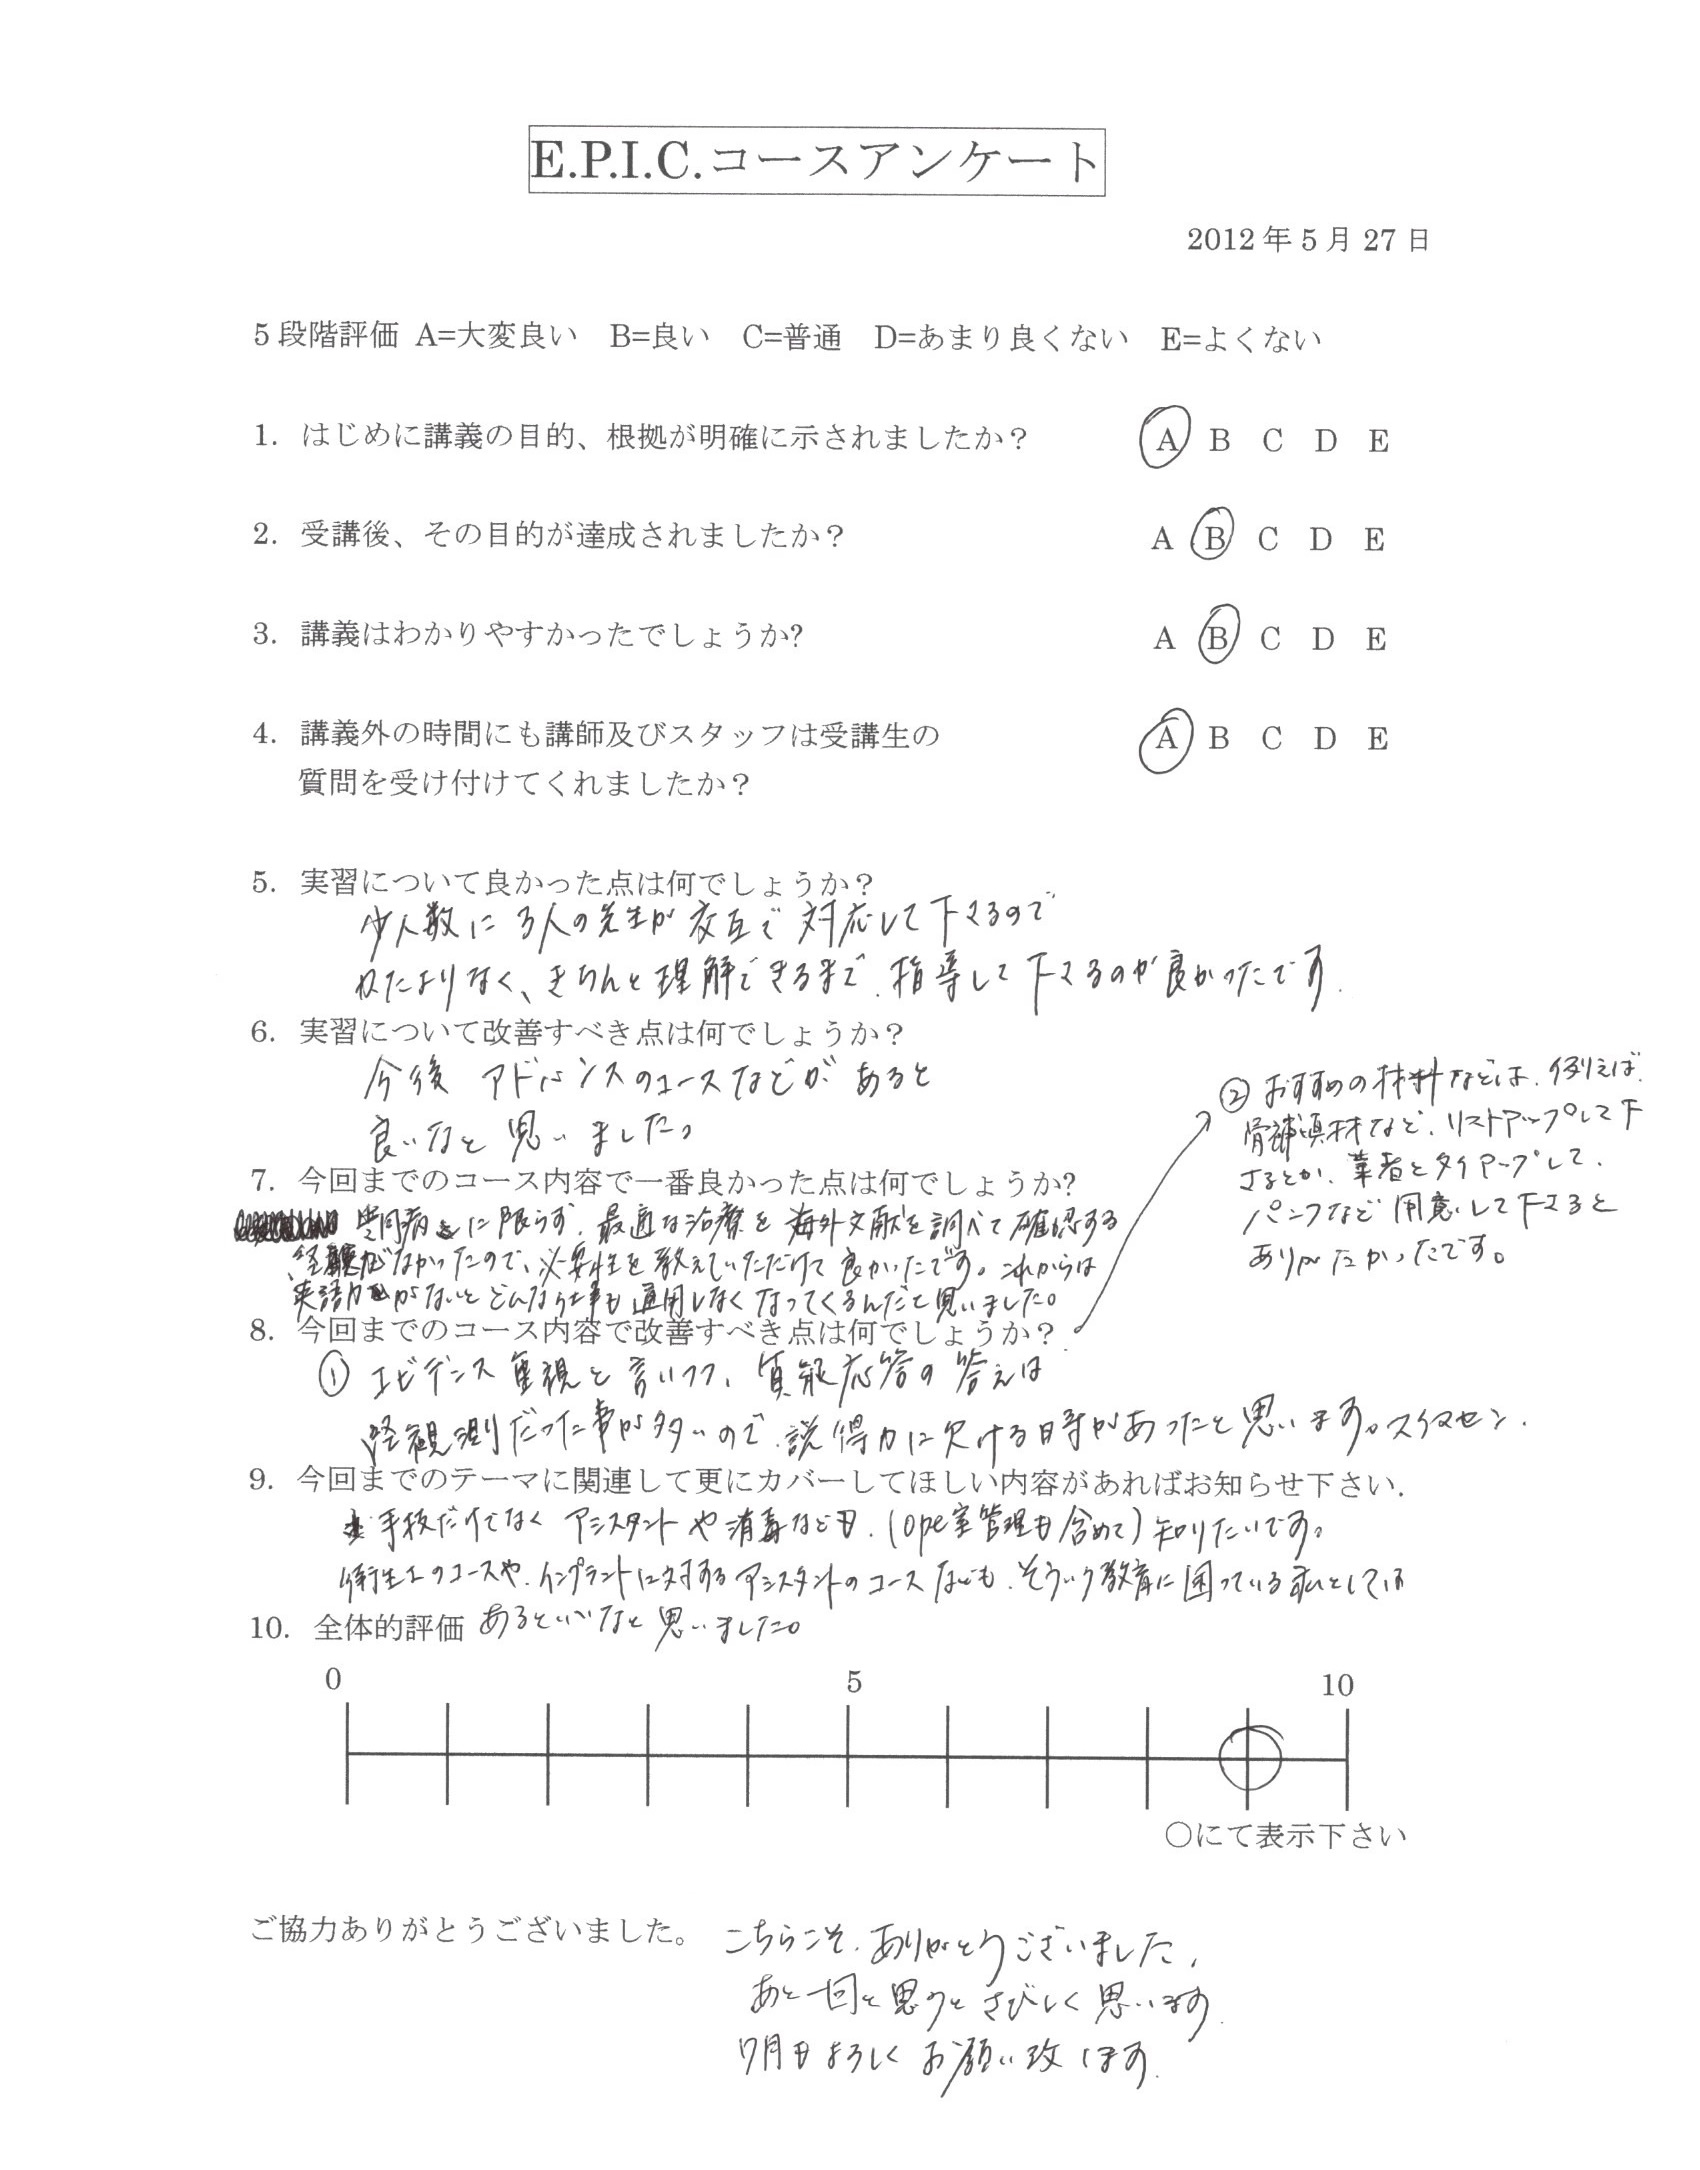 E.P.I.C.コースアンケート
2012年5月27日
5段階評価 A=大変良い B=良い C=普通 D=あまり良くない E=よくない
1. はじめに講義の目的、根拠が明確に示されましたか？ A B C D E
2. 受講後、その目的が達成されましたか？ A B C D E
3. 講義はわかりやすかったでしょうか? A B C D E
4. 講義外の時間にも講師及びスタッフは受講生の A B C D E
質問を受け付けてくれましたか？
5. 実習について良かった点は何でしょうか？
少人数に3人の先生が交互で対応して下さるので
かたよりなく、きちんと理解できるまで、指導して下さるのが良かったです.
6. 実習について改善すべき点は何でしょうか？
今後 アドバンスのコースなどが あると
良いなと思いました。
7. 今回までのコース内容で一番良かった点は何でしょうか?
歯周病に限らず、最適な治療を海外文献を調べて確認する
経験がなかったので、必要性を教えていただけて良かったです。これからは
英語力がないとどんな仕事も通用しなくなってくるんだと思いました。
8. 今回までのコース内容で改善すべき点は何でしょうか？
① エビデンス重視と言いつつ、質疑応答の答えは
経観測だった事が多いので、説得力に欠ける時があったと思います。スイマセン.
② おすすめの材料などは、例えば、
骨補填材など、リストアップして下
さるとか、業者とタイアップして、
パンフなど用意して下さると
ありがたかったです。
9. 今回までのテーマに関連して更にカバーしてほしい内容があればお知らせ下さい.
手技だけでなく アシスタントや消毒なども、(ope室管理も含めて)知りたいです。
衛生士のコースや、インプラントに対するアシスタントのコースなども、そういう教育に困っている私としては
10. 全体的評価 あるといいなと思いました。
0 5 10
○にて表示下さい
ご協力ありがとうございました。 こちらこそ、ありがとうございました.
あと一回と思うとさびしく思います.
7月もよろしくお願い致します.